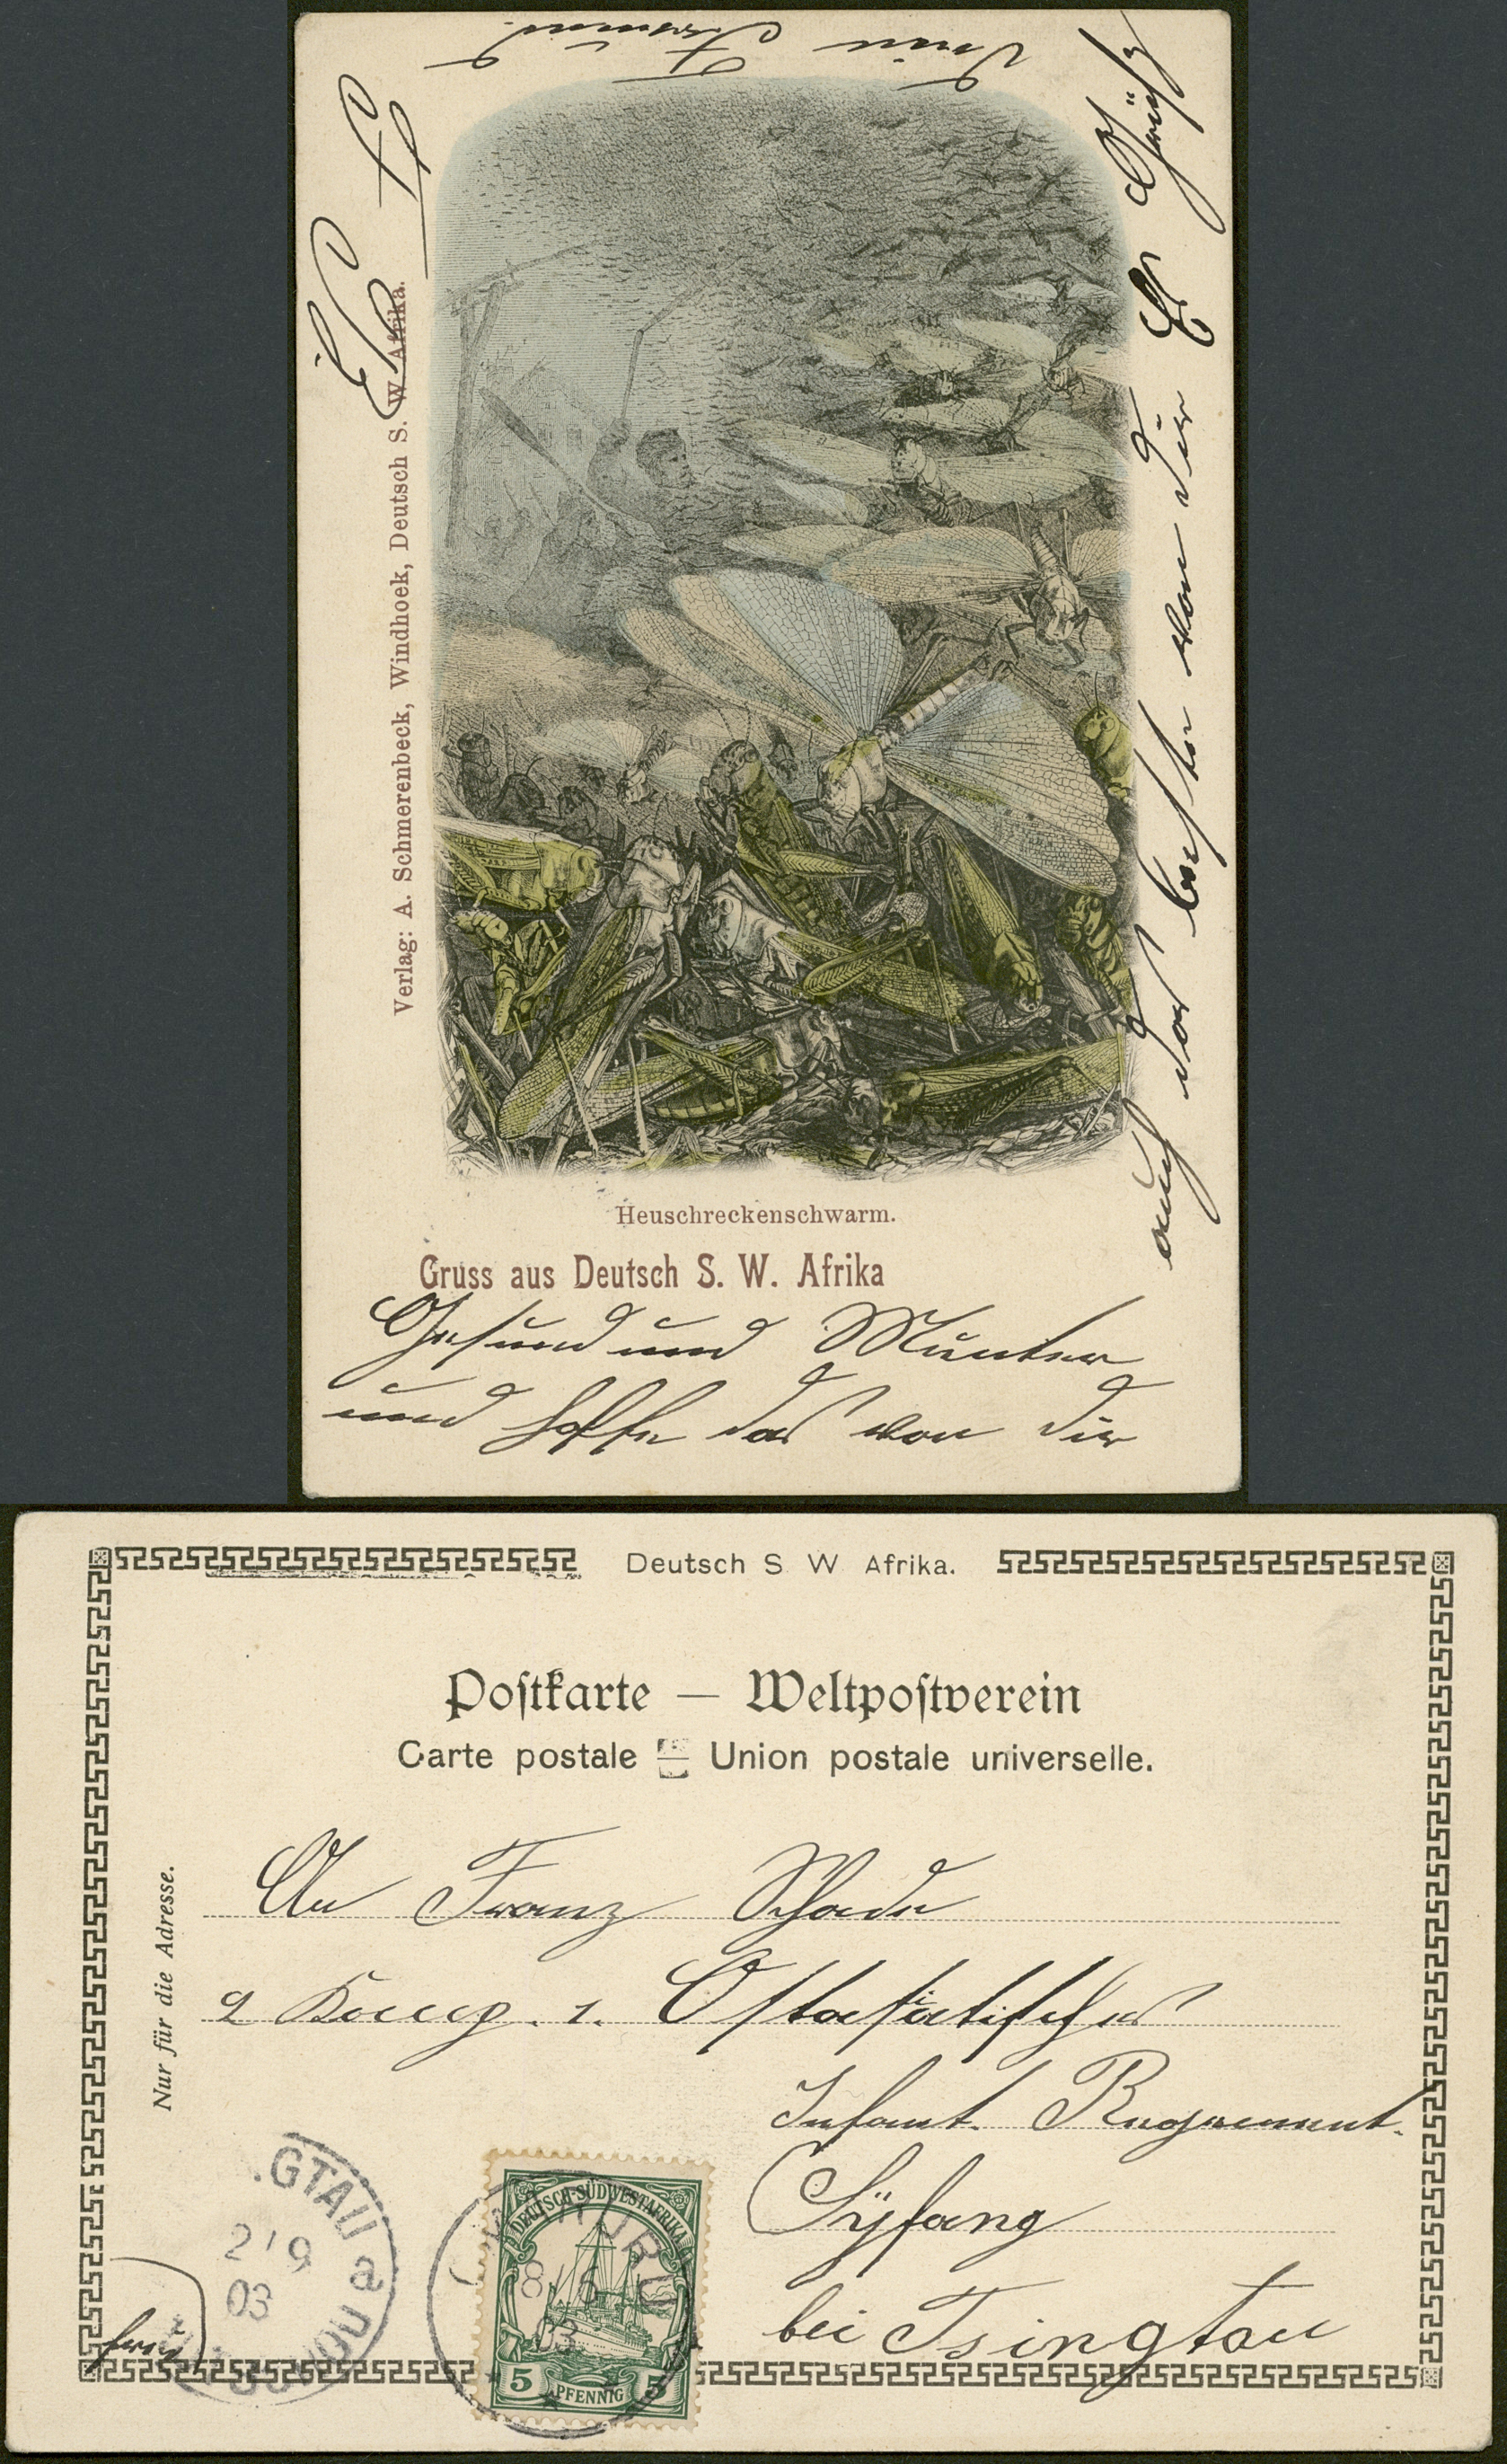 Verlag: A. Schmerenbeck, Windhoek, Deutsch S. W. Afrika.
Heuschreckenschwarm.
Gruss aus Deutsch S. W. Afrika
Gesund und Munter
und hoffe das von dir
auch das beste von dir
Es Grüßt
Dein Freund
Deutsch S W Afrika.
Postkarte — Weltpostverein
Carte postale — Union postale universelle.
Nur für die Adresse.
An Franz Schade
2 Komp. 1. Ostasiatisches
Infant. Regiement.
Syfang
bei Tsingtau
GTAU
2/9
03
a
DEUTSCH-SÜDWESTAFRIKA
8 6
03
5 PFENNIG 5